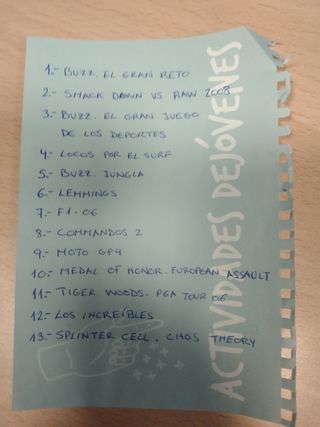 1.- BUZZ. EL GRAN RETO
2.- SMACK DOWN VS RAW 2008
3.- BUZZ. EL GRAN JUEGO
DE LOS DEPORTES
4.- LOCOS POR EL SURF
5.- BUZZ. JUNGLA
6.- LEMMINGS
7.- F1-06
8.- COMMANDOS 2
9.- MOTO GP4
10.- MEDAL OF HONOR. EUROPEAN ASSAULT
11.- TIGER WOODS. PGA TOUR 06
12.- LOS INCREÍBLES
13.- SPLINTER CELL. CHOS THEORY
ACTIVIDADES DEJÓVENES